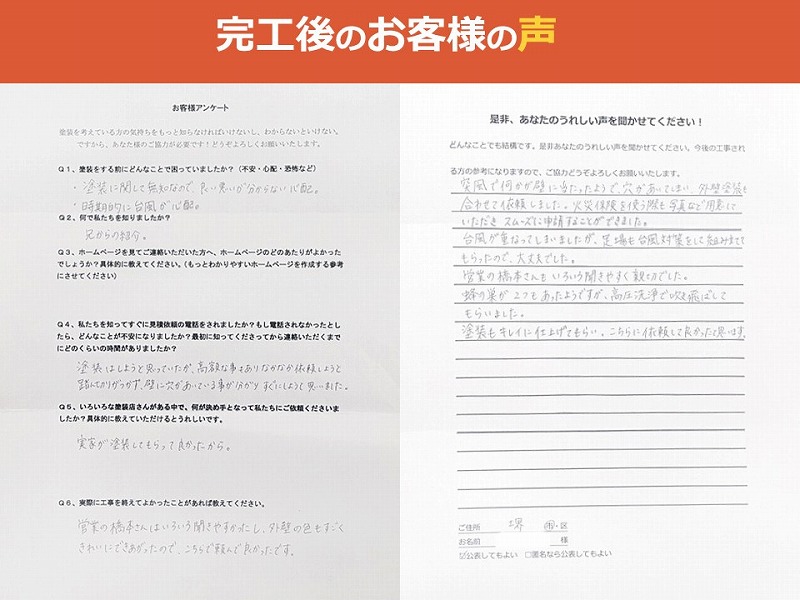 完工後のお客様の声
お客様アンケート
塗装を考えている方の気持ちをもっと知らなければいけないし、わからないといけない。
ですから、あなた様のご協力が必要です！どうぞよろしくお願いいたします。
Q1、塗装をする前にどんなことで困っていましたか？（不安・心配・恐怖など）
・塗装に関して無知なので、良い悪いが分からない心配。
・時期的に台風が心配。
Q2、何で私たちを知りましたか？
兄からの紹介。
Q3、ホームページを見てご連絡いただいた方へ、ホームページのどのあたりがよかった
でしょうか？具体的に教えてください。（もっとわかりやすいホームページを作成する参考
にさせてください）
Q4、私たちを知ってすぐに見積依頼の電話をされましたか？もし電話されなかったとし
たら、どんなことが不安になりましたか？最初に知ってくださってから連絡いただくまで
にどのくらいの時間がありましたか？
塗装はしようと思っていたが、高額な事もありなかなか依頼しようと
踏んぎりがつかず、壁に穴があいている事が分かりすぐにしようと思いました。
Q5、いろいろな塗装店さんがある中で、何が決め手となって私たちにご依頼くださいま
したか？具体的に教えていただけるとうれしいです。
実家が塗装してもらって良かったから。
Q6、実際に工事を終えてよかったことがあれば教えてください。
営業の橋本さんはいろいろ聞きやすかったし、外壁の色もすごく
きれいにできあがったので、こちらで頼んで良かったです。
是非、あなたのうれしい声を聞かせてください！
どんなことでも結構です。是非あなたのうれしい声を聞かせてください。今後の工事され
る方の参考になりますので、ご協力どうぞよろしくお願いいたします。
突風で何かが壁に当たったようで、穴があいてしまい、外壁塗装も
合わせて依頼しました。火災保険を使う際も写真など用意して
いただき スムーズに申請することができました。
台風が重なってしまいましたが、足場も台風対策をして組み立てて
もらったので、大丈夫でした。
営業の橋本さんもいろいろ聞きやすく親切でした。
蜂の巣が2つもあったようですが、高圧洗浄で吹き飛ばして
もらいました。
塗装もキレイに仕上げてもらい、こちらに依頼して良かったと思います。
ご住所 堺 市・区
お名前 様
☑公表してもよい □匿名なら公表してもよい